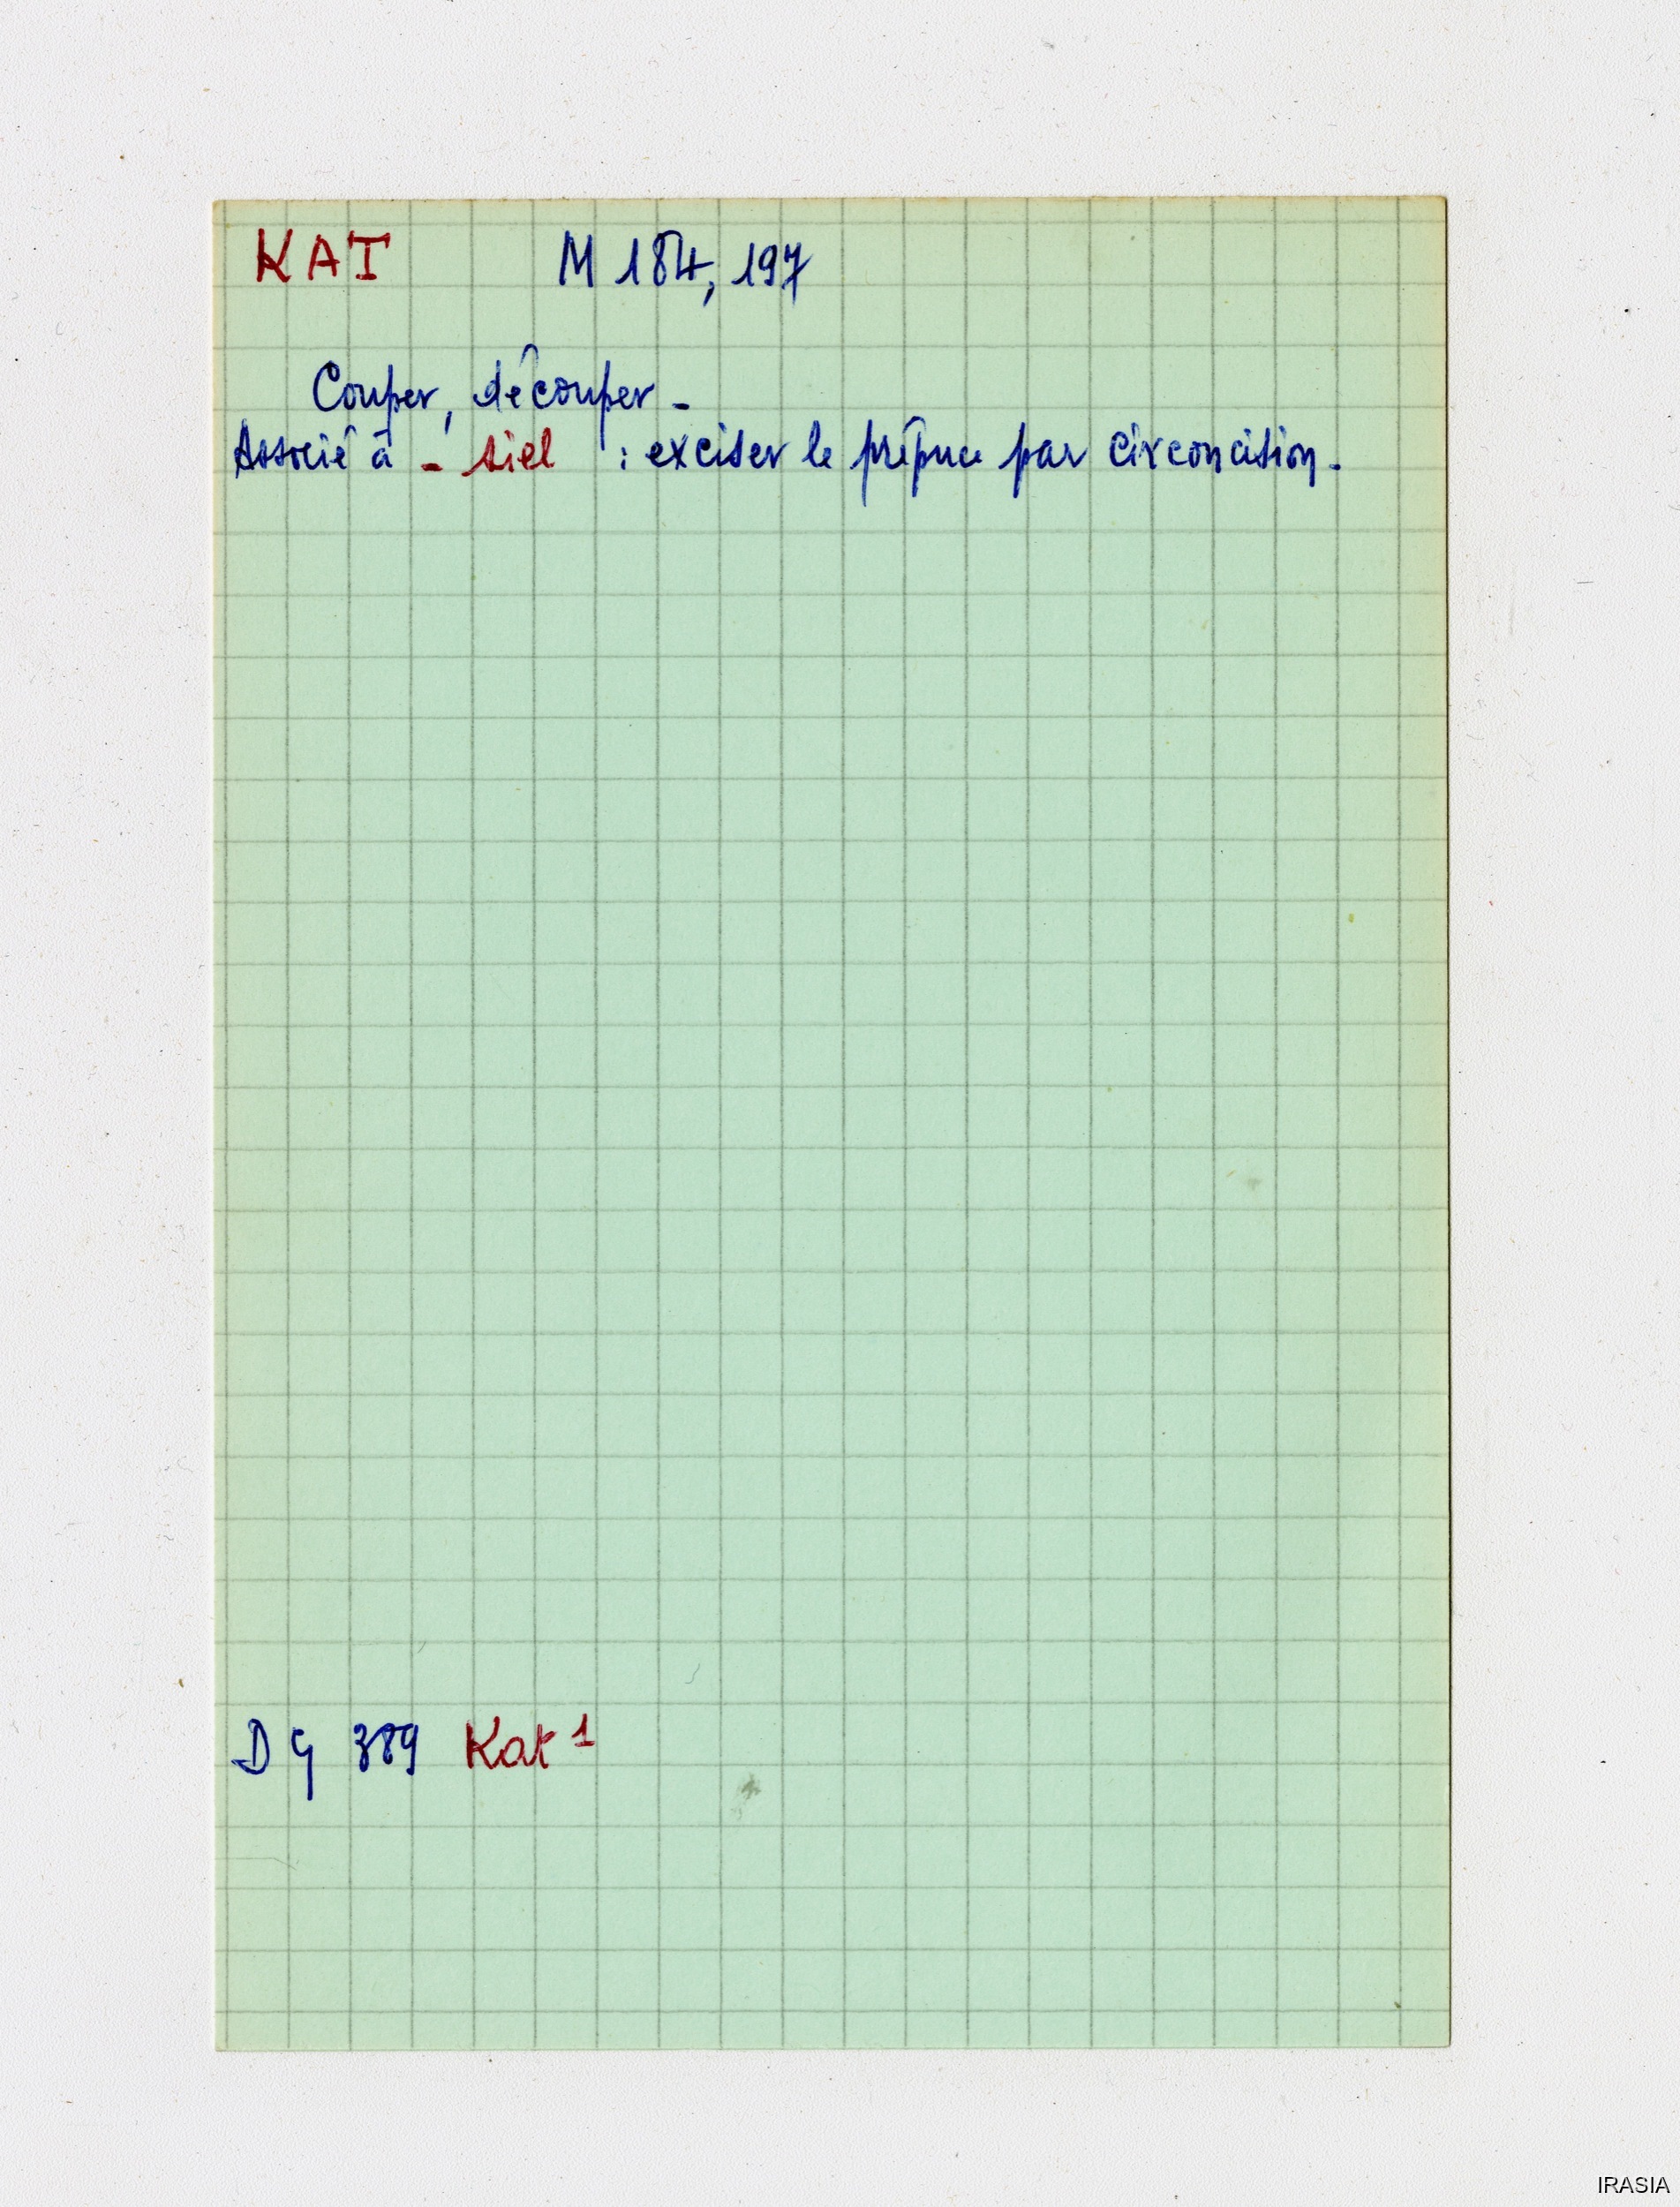 KAT M 184, 197
Couper, découper -
Associé à - siel : exciser le prépuce par circoncision -
DG 389 Kat¹
IRASIA